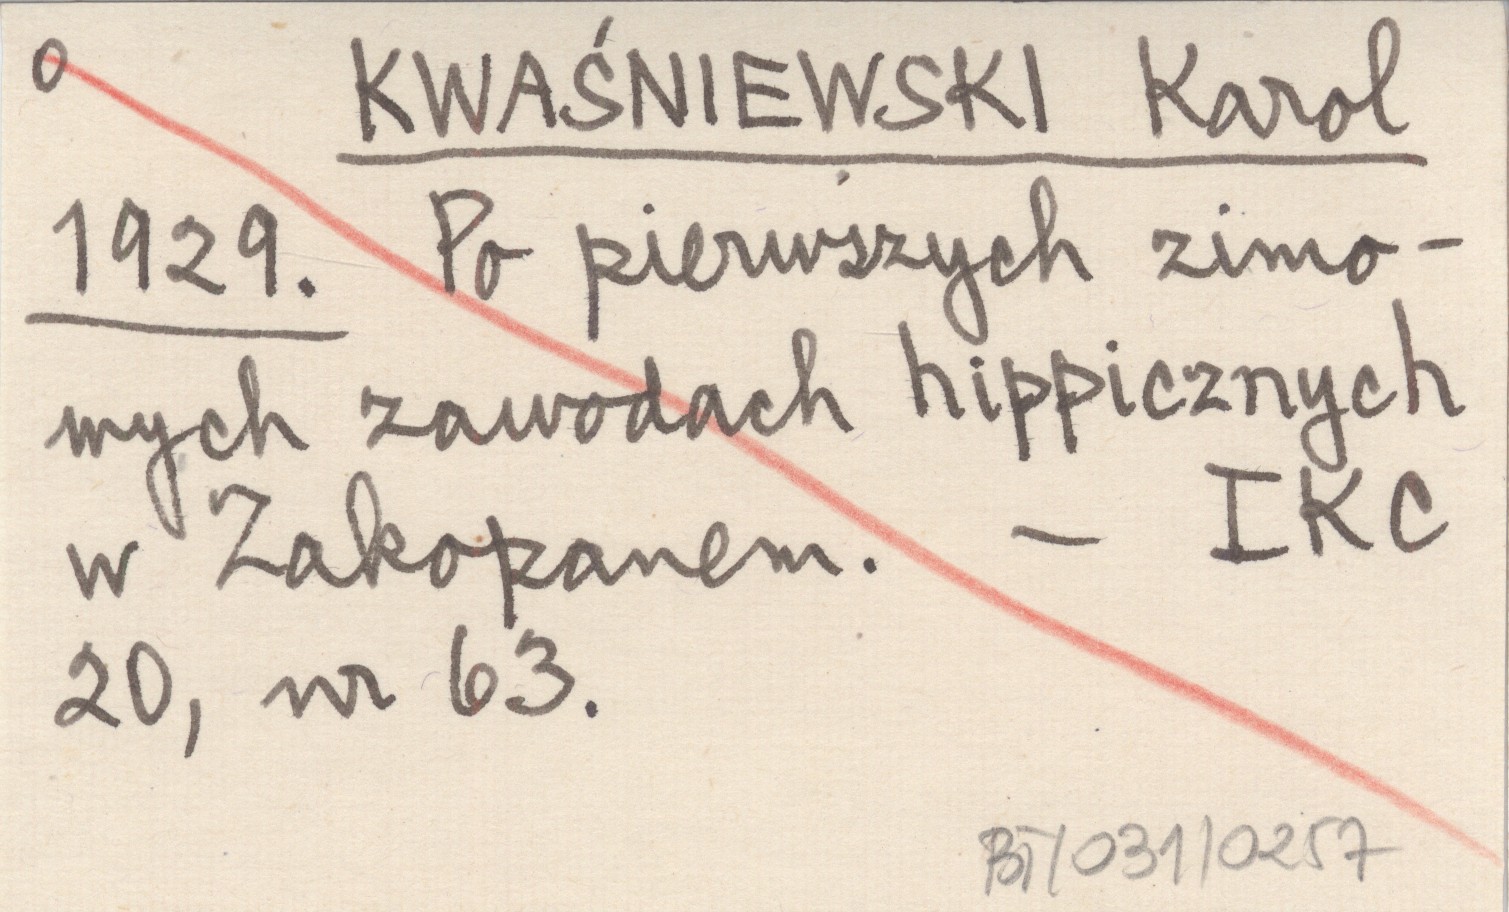 O KWAŚNIEWSKI Karol
1929. Po pierwszych zimo-
wych zawodach hippicznych
w Zakopanem. - IKC
20, nr 63.
BT/031/0257